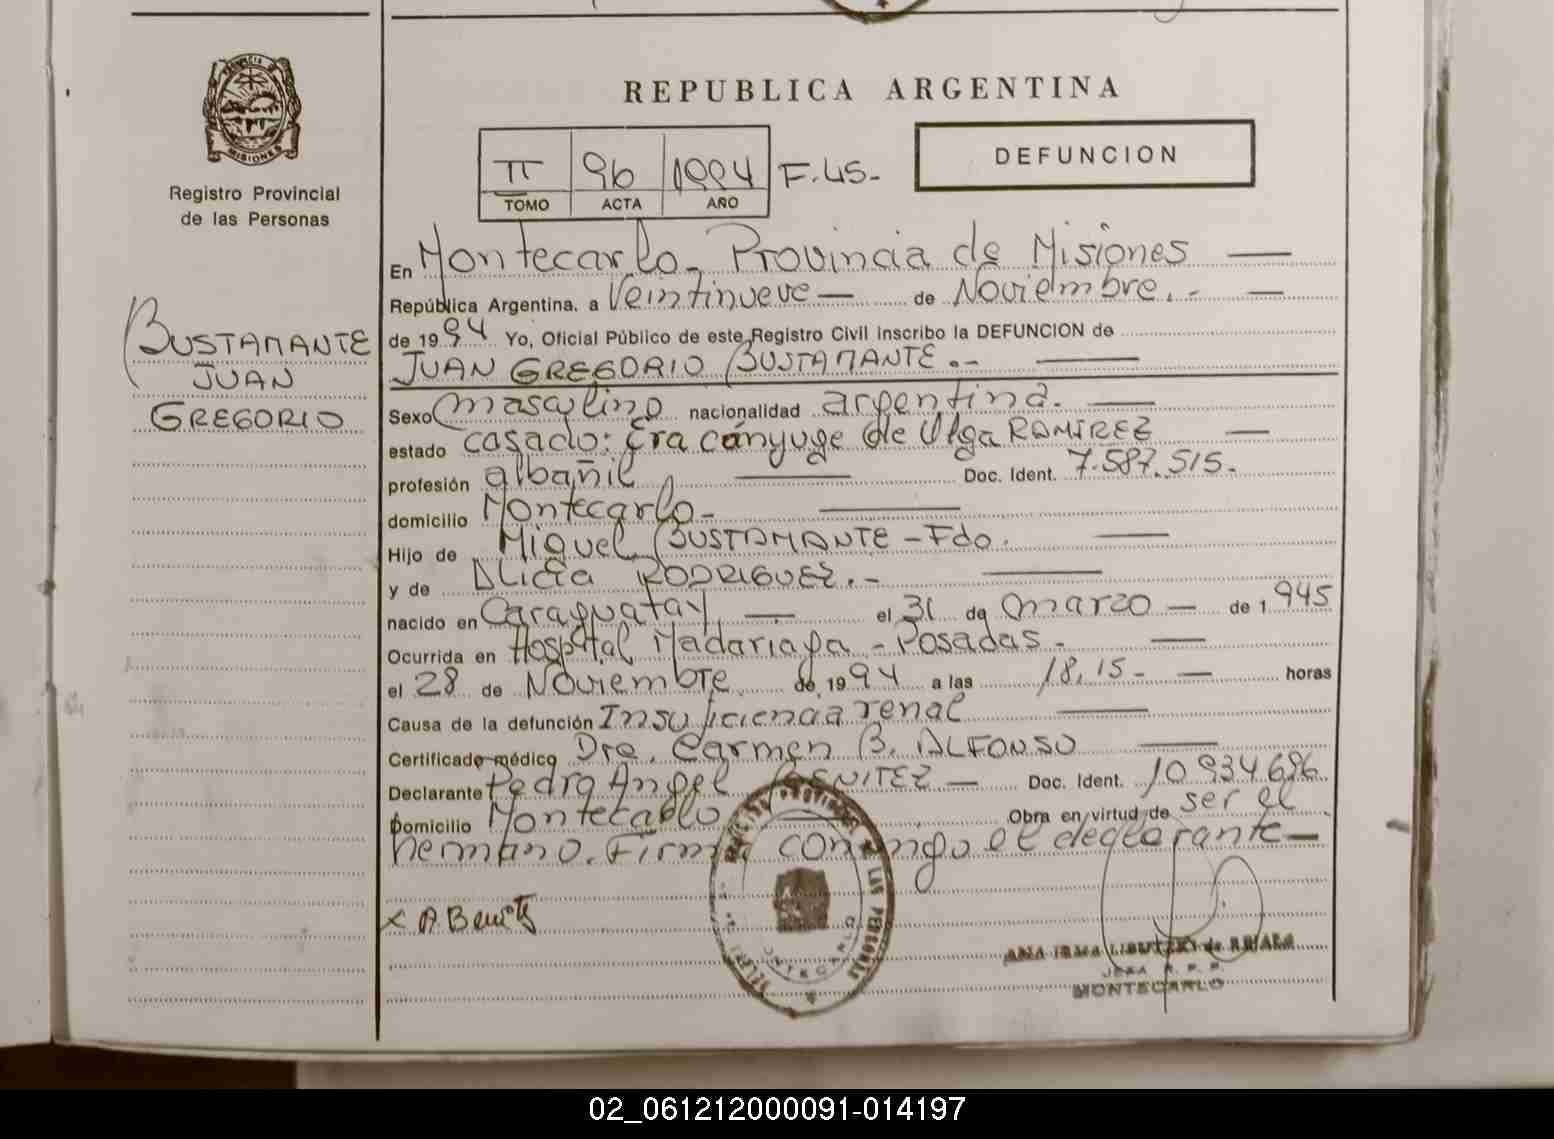 REPUBLICA ARGENTINA
PROVINCIA D
MISIONES
Registro Provincial
de las Personas
II 96 1994 F.45.-
TOMO ACTA AÑO
DEFUNCION
En Montecarlo - Provincia de Misiones —
República Argentina, a Veintinueve — de Noviembre.- —
de 1994 Yo, Oficial Público de este Registro Civil inscribo la DEFUNCION de
JUAN GREGORIO BUSTAMANTE.- —
BUSTAMANTE
JUAN
GREGORIO
Sexo masculino nacionalidad argentina. —
estado casado: Era cónyuge de Olga RAMIREZ —
profesión albañil — Doc. Ident. 7.587.515.-
domicilio Montecarlo- —
Hijo de Miguel BUSTAMANTE - Fdo. —
y de Alicia RODRIGUEZ.- —
nacido en Caraguatay — el 31 de marzo — de 1945
Ocurrida en Hospital Madariaga - Posadas - —
el 28 de Noviembre de 1994 a las 18,15 - — horas
Causa de la defunción Insuficiencia renal —
Certificado médico Dra. Carmen B. ALFONSO —
Declarante Pedro Angel BENITEZ — Doc. Ident. 10934696
Domicilio Montecarlo Obra en virtud de ser el
hermano. Firma conmigo el declarante —
x A. Benitz
MONTECARLO
JEFA R. P. P.
MONTECARLO
02_061212000091-014197